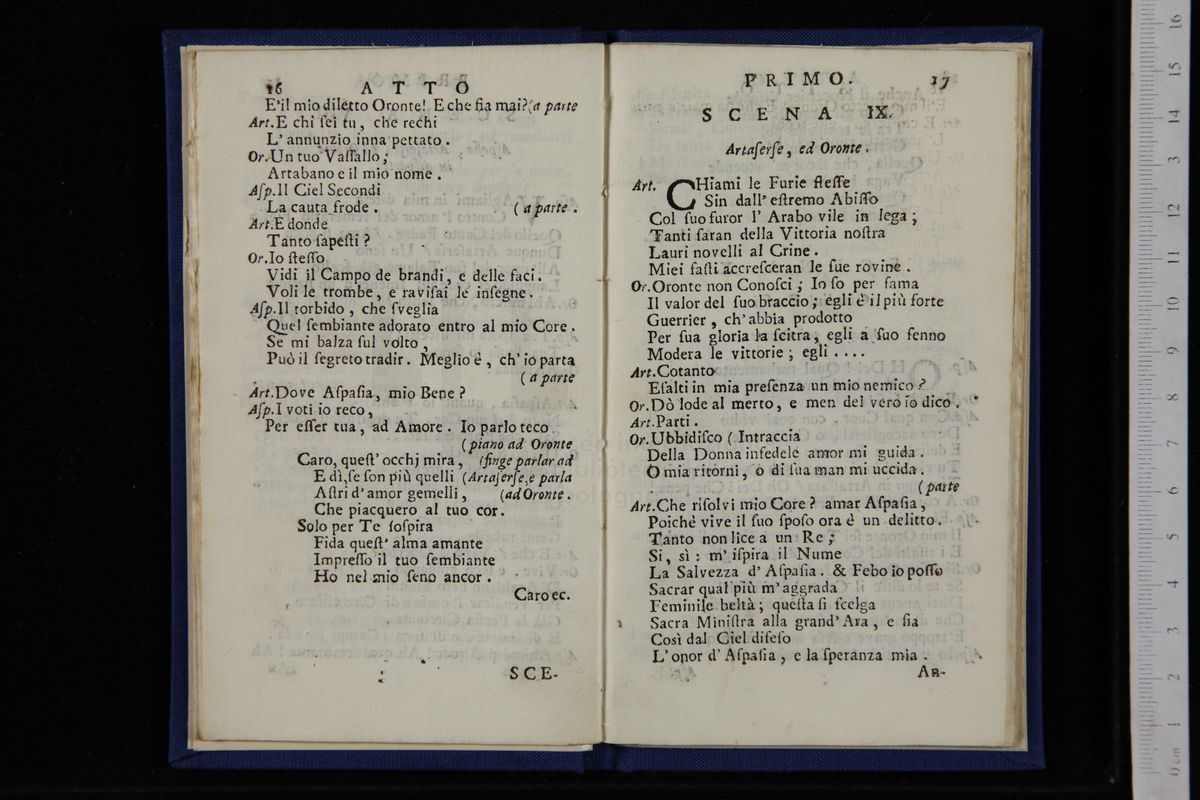 16 ATTO
E'il mio diletto Oronte! E che ſia mai?(a parte
Art.E chi ſei tu, che rechi
L' annunzio inna pettato.
Or.Un tuo Vaſſallo;
Artabano e il mio nome.
Aſp.Il Ciel Secondi
La cauta frode. (a parte.
Art.E donde
Tanto ſapeſti?
Or.Io ſteſſo
Vidi il Campo de brandi, e delle faci.
Voli le trombe, e raviſai le inſegne.
Aſp.Il torbido, che ſveglia
Quel ſembiante adorato entro al mio Core.
Se mi balza ſul volto,
Può il ſegreto tradir. Meglio è, ch' io parta
(a parte
Art.Dove Aſpaſia, mio Bene?
Aſp.I voti io reco,
Per eſſer tua, ad Amore. Io parlo teco
(piano ad Oronte
Caro, queſt' occhj mira, (finge parlar ad
E dì,ſe ſon più quelli (Artaſerſe,e parla
Aſtri d' amor gemelli, (ad Oronte.
Che piacquero al tuo cor.
Solo per Te ſoſpira
Fida queſt' alma amante
Impreſſo il tuo ſembiante
Ho nel mio ſeno ancor.
Caro ec.
SCE-
PRIMO. 17
SCENA IX.
Artaſerſe, ed Oronte.
Art. CHiami le Furie ſteſſe
Sin dall' eſtremo Abiſſo
Col ſuo furor l' Arabo vile in lega;
Tanti ſaran della Vittoria noſtra
Lauri novelli al Crine.
Miei faſti accreſceran le ſue rovine.
Or.Oronte non Conoſci; Io ſo per fama
Il valor del ſuo braccio; egli è il più forte
Guerrier, ch' abbia prodotto
Per ſua gloria la ſcitra; egli a ſuo ſenno
Modera le vittorie; egli....
Art.Cotanto
Eſalti in mia preſenza un mio nemico?
Or.Dò lode al merto, e men del vero io dico.
Art.Parti.
Or.Ubbidiſco (Intraccia
Della Donna infedele amor mi guida.
O mia ritorni, o di ſua man mi uccida.
(parte
Art.Che riſolvi mio Core? amar Aſpaſia,
Poichè vive il ſuo ſpoſo ora è un delitto.
Tanto non lice a un Re;
Si, sì: m' iſpira il Nume
La Salvezza d' Aſpaſia. & Febo io poſſo
Sacrar qual più m' aggrada
Feminile beltà; queſta ſi ſcelga
Sacra Miniſtra alla grand' Ara, e ſia
Così dal Ciel difeſo
L' onor d' Aſpaſia, e la ſperanza mia.
AR-